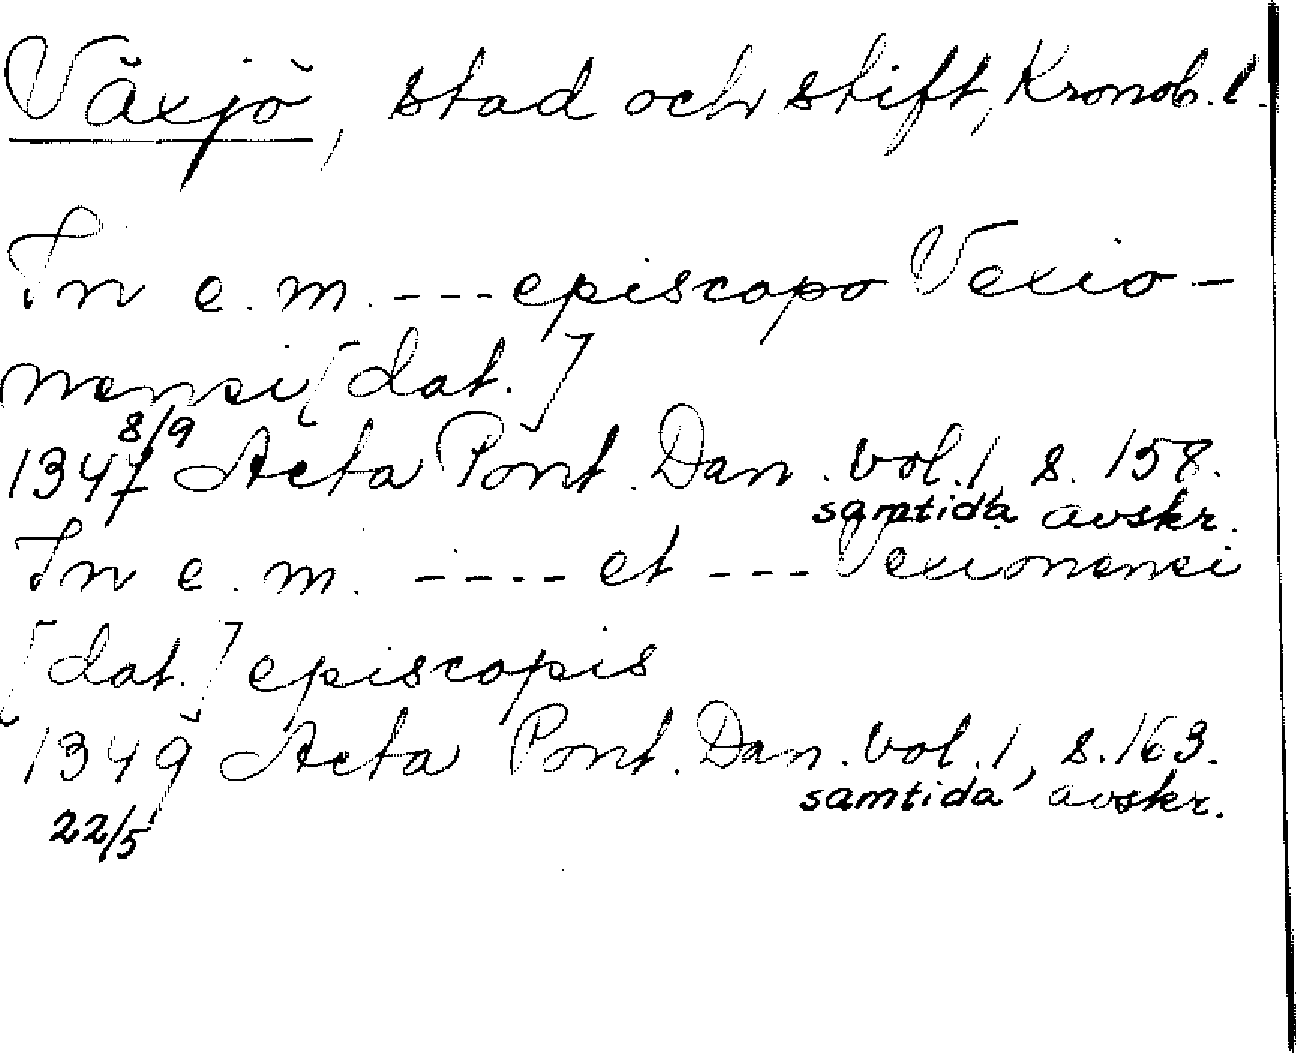 Växjö, stad och stift, Kronob. l.
In e. m. --- episcopo Vexio-
nensi [dat.]
8/9
1347 Acta Pont. Dan. vol. 1, s. 158.
samtida avskr.
In e. m. ---- et --- Vexionensi
[dat.] episcopis
1349 Acta Pont. Dan. vol. 1, s. 163.
samtida avskr.
22/5